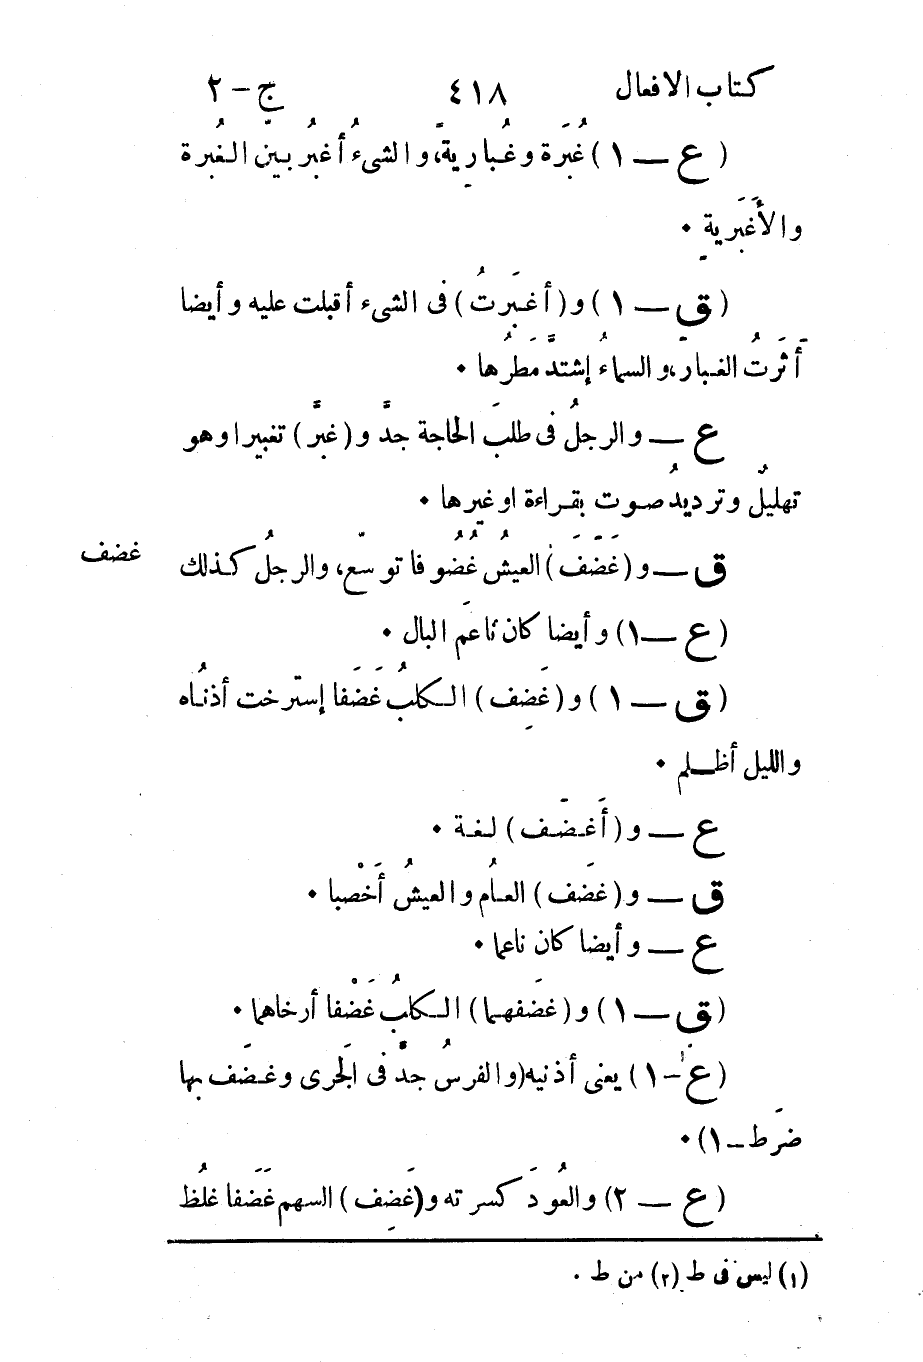 كتاب الافعال ٤١٨ ج – ٢
(ع — ١) غُبَرَة وغُبارِيةً، والشىءُ أغبرُ بيّن الغُبرة
والأَغبَرِيةِ ٠
(ق — ١) و(أغبَرتُ) فى الشىء أقبلت عليه وأيضا
أَثَرتُ الغبارَ، والسماءُ إشتدَّ مَطرُها ٠
ع — والرجلُ فى طلبَ الحاجة جدَّ و(غبَّر) تغبيرا وهو
تهليلٌ وترديدُ صوت بقراءة اوغيرها ٠
غضف
ق — و(غَضَفَ) العيشُ غُضُوفا توسّع، والرجلُ كذلك
(ع —١) وأيضا كان ناعمَ البال ٠
(ق — ١) و(غَضِف) الكلبُ غَضَفا إسترخت أذنُاه
والليل أظلم ٠
ع — و(أَغضَف) لغة ٠
ق — و(غضَف) العامُ والعيشُ أَخْصبا ٠
ع — وأيضا كان ناعما ٠
(ق — ١) و(غضَفهما) الكلبُ غَضْفا أرخاهما ٠
(ع –١) يعنى أذنيه(والفرسُ جدَّ فى الجَرى وغضَف بها
ضرَط –١)٠
(ع — ٢) والعُودَ كسرته و(غَضِف) السهم غَضَفا غلُظ
(١) ليس فى ط (٢) من ط ٠